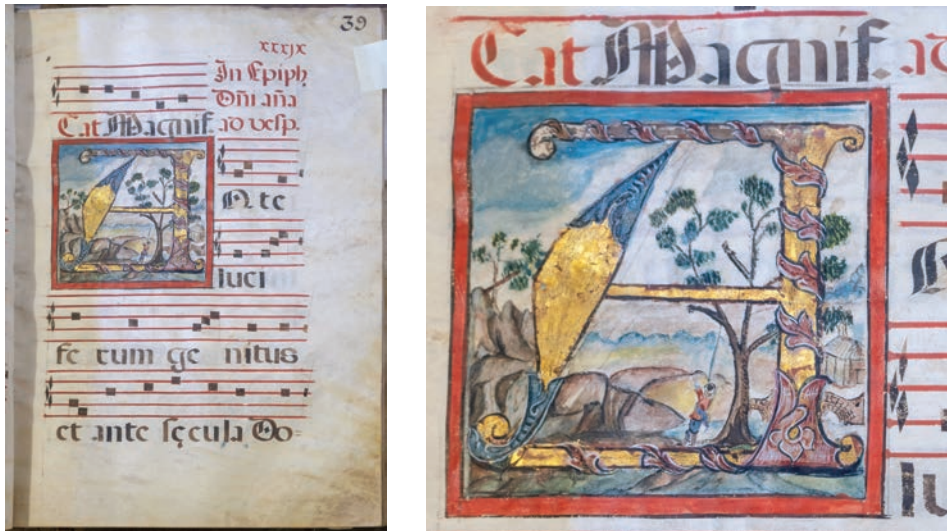 39
xxxjx
In Epiph
Dñi aña
Cat Magnif. ad vesp.
A N te
luci
fe rum ge nitus
et ante sęcula Do=
Cat Magnif. ad
A
lu